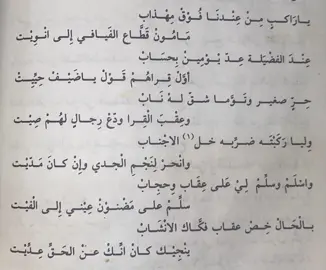 يارَاكبٍ مِنْ عِنْدنَا فُوْقْ مِهْذَابْ
مَامُونْ قَطَّاع الفَيافي إلى انْوِيْت
عِنْدَ الفضيْلة عِدّ يَوْمِينْ بِحِسَابْ
أوّلْ قِرَاهُمْ قَوْل يـاضَيْفْ حِيِّيْت
حِرٍّ صغير وتَوّما شقّ لـهْ نَـابْ
وعِقْبَ الْقِرا ودِّعْ رِجالٍ لهُمْ صِيْت
وليا رَكِبْتَه ضربه خل (١) الاجْنابْ
وانْحرْ لِنَجْمِ الْجدي وإنْ كانْ مَدّيْت
وانْلَمْ وسلِّمْ لِيْ عَلى عِقَابْ وحجابْ
سلِّمْ على مَضْنُوْنْ عِيْني إلى الْفَيْت
بالْحَالْ خِصْ عقاب فكَّاك الأنْشَابْ
يِنْجِيْك كانْ انّكْ عَنْ الْحَقّ عِدّيْت